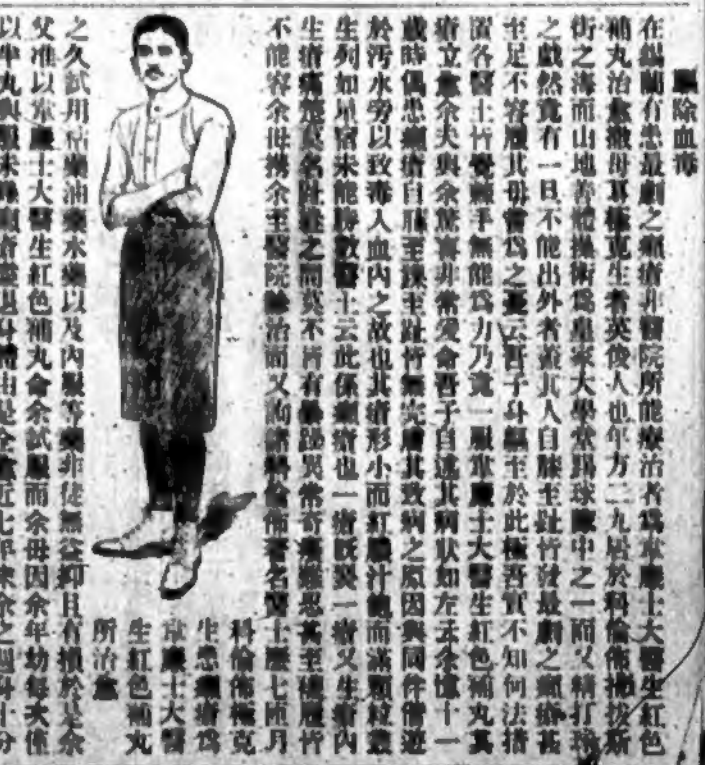 除血毒
在錫蘭有患最劇之癩瘡非醫院所能療治者為韋廉士大醫生紅色
補丸治愈 生者英俊人也年方二九居於科倫佛 斯
街之海而山地善體操術為皇家大學堂踢球隊中之一而又精打球
之戲然竟有一旦不能出外者蓋其人自膝至趾皆發最劇之癩瘡甚
至足不容履其母嘗為之憂云吾子身 至於此極吾實不知何法措
置各醫士皆覺棘手無能為力乃竟一服韋廉士大醫生紅色補丸其
瘡立愈余夫與余驚喜非常爰命吾子自述其病狀如左云余憶十一
歲時偶患癩瘡自膝至踝至趾皆無完膚其致病之原因與同伴偕遊
於污水旁以致毒入血內之故也其瘡形小而紅 汁 而滿顆粒叢
生列如星宿未能勝數醫士云此係癩瘡也一瘡既癸一瘡又生瘡內
生瘡痛楚莫名趾 之間莫不皆有 異常奇癢難忍甚至襪履皆
不能容余母攜余至醫院 治而又 諸科倫佛著名醫士歷七匝月
之久試用枯藥油藥水藥以及內服等藥非徒無益抑且有損於是余
父准以韋廉士大醫生紅色補丸命余試服而余母因余年幼每次僅
以半丸與服 癩瘡 退身體由是全愈近七年來余之週身十分
科倫佛 克
生患癩瘡為
韋廉士大醫
生紅色補丸
所治愈